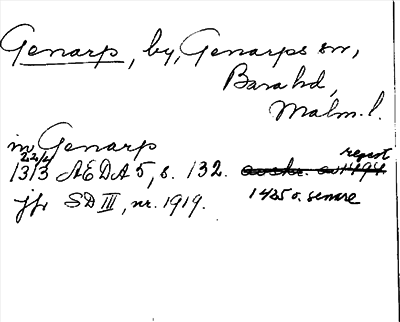 Genarp, by, Genarps sn,
Bara hd,
Malm. l.
in Genarp
22/4 regest
1313 AEDA 5, s. 132. avskr. av 1494
jfr SD III, nr. 1919. 1425 o. senare